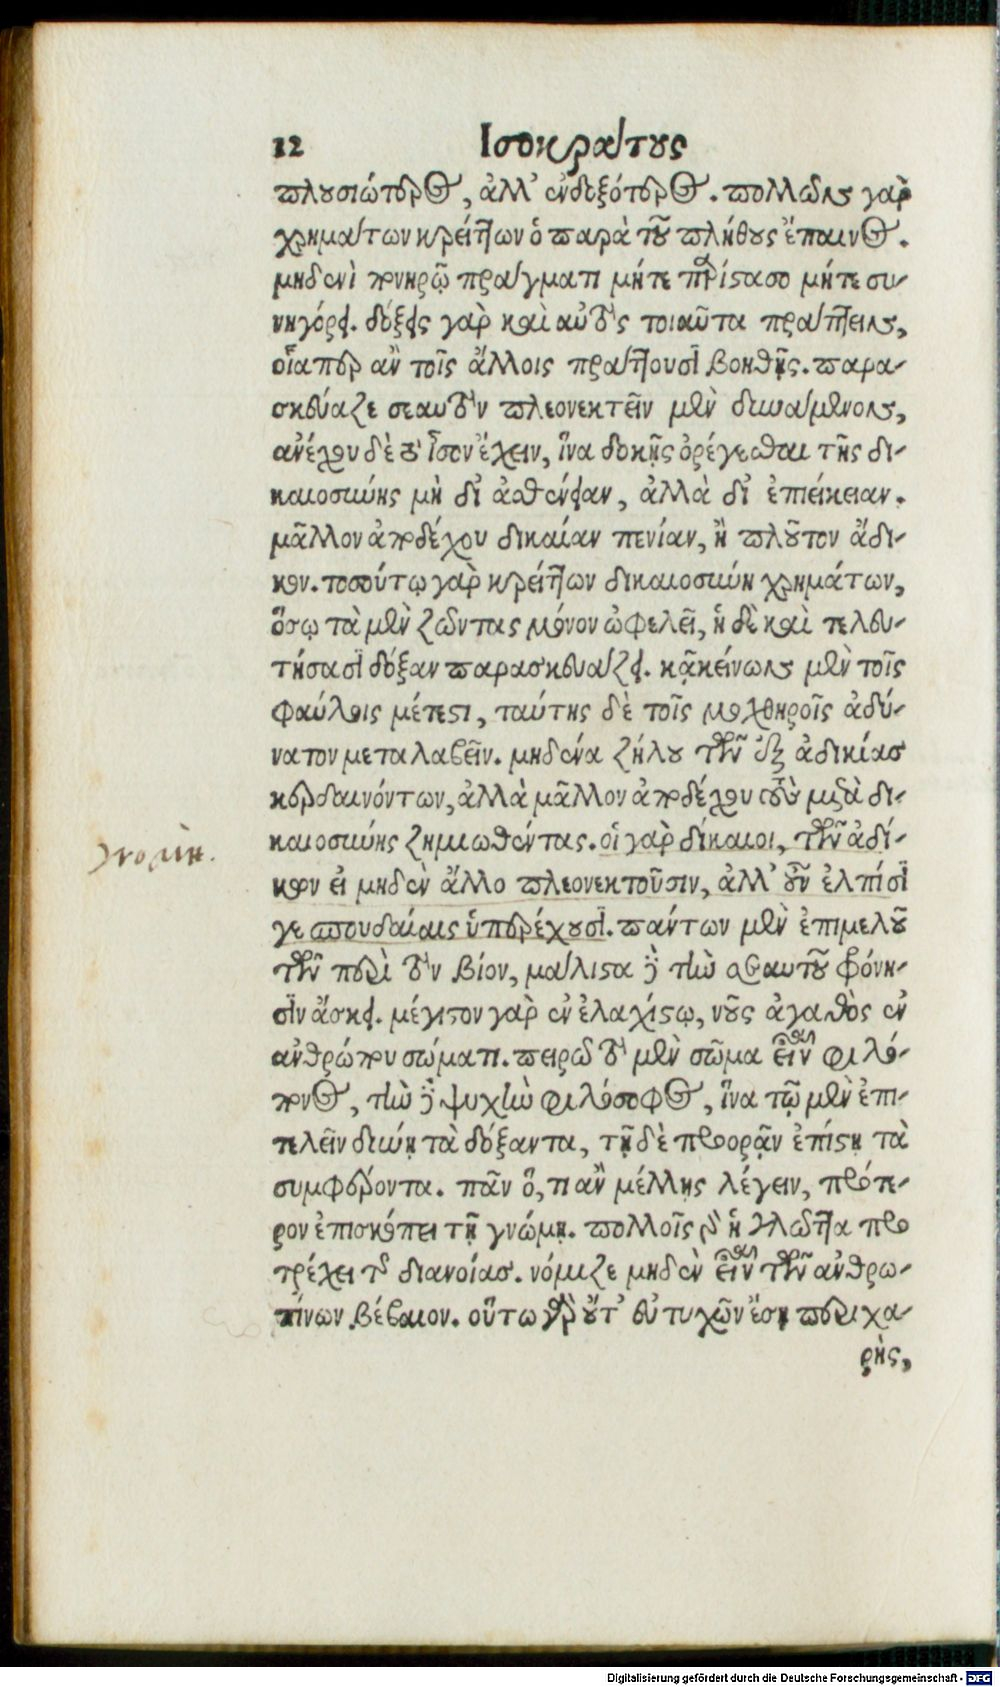 12 Ισοκράτους
πλουσιώτερος, ἀλλ᾽ ἐνδοξότερος. πολλῶν γὰρ
χρημάτων κρείττων ὁ παρὰ τοῦ πλήθους ἔπαινος.
μηδενὶ πονηρῷ πράγματι μήτε παρίστασο μήτε συ-
νηγόρει. δόξεις γὰρ καὶ αὐτὸς τοιαῦτα πράττειν,
οἷάπερ ἂν τοῖς ἄλλοις πράττουσι βοηθῇς. παρα-
σκεύαζε σεαυτὸν πλεονεκτεῖν μὲν δυνάμενον,
ἀνέχου δὲ τὸ ἴσον ἔχειν, ἵνα δοκῇς ὀρέγεσθαι τῆς δι-
καιοσύνης μὴ δι᾽ ἀσθένειαν, ἀλλὰ δι᾽ ἐπιείκειαν.
μᾶλλον ἀποδέχου δικαίαν πενίαν, ἢ πλοῦτον ἄδι-
κον. τοσούτῳ γὰρ κρείττων δικαιοσύνη χρημάτων,
ὅσῳ τὰ μὲν ζῶντας μόνον ὠφελεῖ, ἡ δὲ καὶ τελευ-
τήσασι δόξαν παρασκευάζει. κᾀκείνων μὲν τοῖς
φαύλοις μέτεστι, ταύτης δὲ τοῖς μοχθηροῖς ἀδύ-
νατον μεταλαβεῖν. μηδένα ζήλου τῶν ἐξ ἀδικίας
κερδαινόντων, ἀλλὰ μᾶλλον ἀποδέχου τοὺς μετὰ δι-
καιοσύνης ζημιωθέντας. οἱ γὰρ δίκαιοι, τῶν ἀδί-
κων εἰ μηδὲν ἄλλο πλεονεκτοῦσιν, ἀλλ᾽ οὖν ἐλπίσι
γε σπουδαίαις ὑπερέχουσι. πάντων μὲν ἐπιμελοῦ
τῶν περὶ τὸν βίον, μάλιστα δὲ τὴν σεαυτοῦ φρόνη-
σιν ἄσκει. μέγιστον γὰρ ἐν ἐλαχίστῳ, νοῦς ἀγαθὸς ἐν
ἀνθρώπου σώματι. πειρῶ τὸ μὲν σῶμα εἶναι φιλό-
πονος, τὴν δὲ ψυχὴν φιλόσοφος, ἵνα τῷ μὲν ἐπι-
τελεῖν δύνῃ τὰ δόξαντα, τῇ δὲ προορᾷν ἐπίστῃ τὰ
συμφέροντα. πᾶν ὅ,τι ἂν μέλλῃς λέγειν, πρότε-
ρον ἐπισκόπει τῇ γνώμῃ. πολλοῖς γὰρ ἡ γλῶττα προ
τρέχει τῆς διανοίας. νόμιζε μηδὲν εἶναι τῶν ἀνθρω-
πίνων βέβαιον. οὕτω γὰρ οὔτ᾽ εὐτυχῶν ἔσῃ περιχα-
ρὴς,
γνώμη.
Digitalisierung gefördert durch die Deutsche Forschungsgemeinschaft - DFG